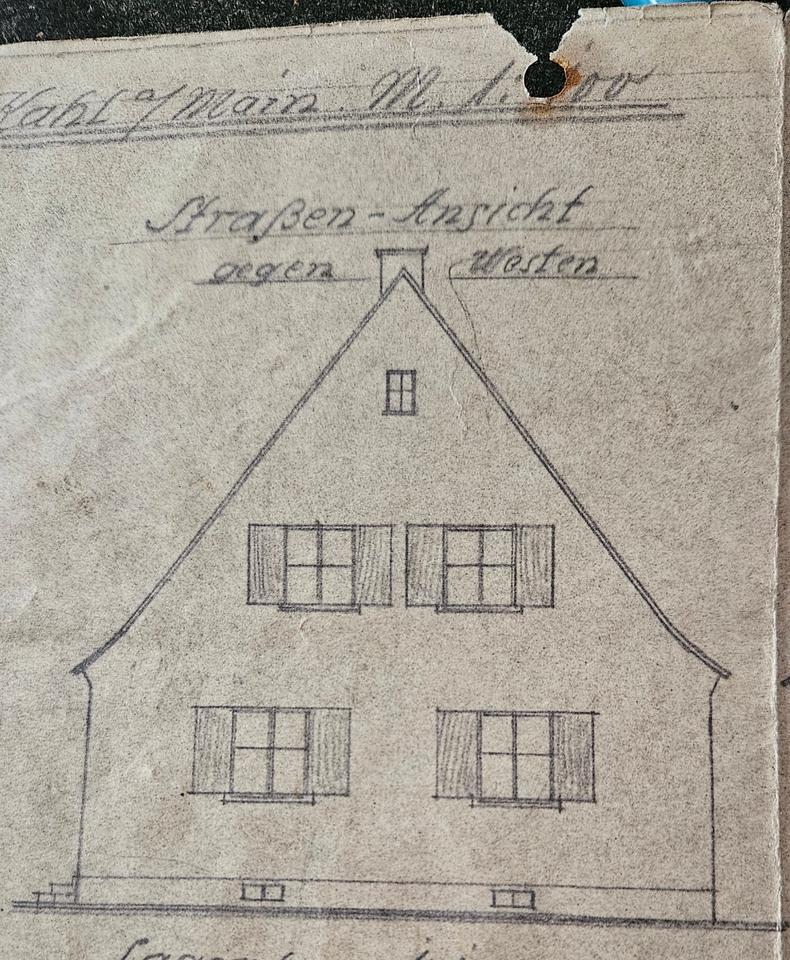 Kahl a/Main. M. 1:100
Straßen-Ansicht
gegen Westen